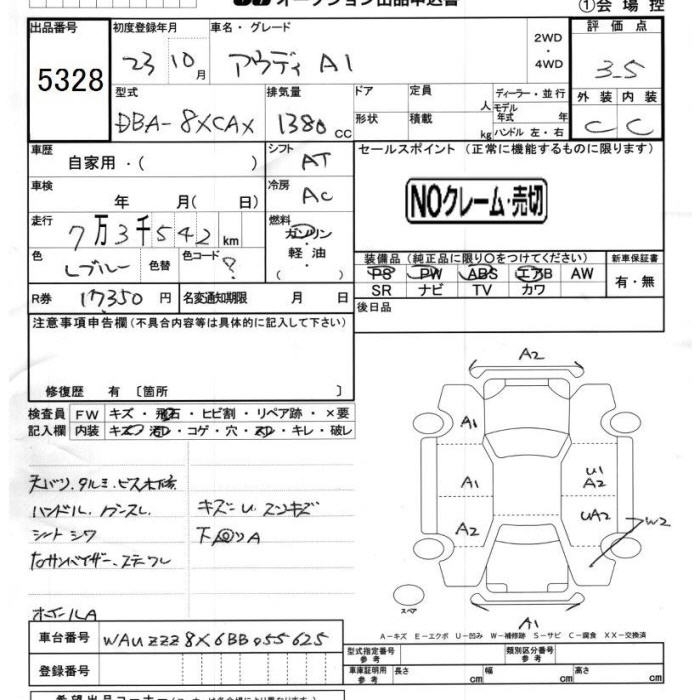 オークション出品申込書
①会場控
出品番号 初度登録年月 車名・グレード 評価点
5328 23 10月 アウディ A1 2WD・4WD 3.5
型式 排気量 ドア 定員 人 ディーラー・並行 外装 内装
DBA-8XCAX 1380cc 形状 積載 kg モデル年式 年 ハンドル 左・右 C C
車歴 自家用・( ) シフト AT セールスポイント (正常に機能するものに限ります)
車検 年 月( 日) 冷房 AC NOクレーム・売切
走行 7万3千542km 燃料 ガソリン・軽油・
色 Lブルー 色替 色コード ? 装備品(純正品に限り○をつけてください) 新車保証書
PS PW ABS エアB AW 有・無
SR ナビ TV カワ
R券 17350円 名変通知期限 月 日 後日品
注意事項申告欄(不具合内容等は具体的に記入して下さい)
修復歴 有〔箇所 〕
検査員 FW キズ・飛石・ヒビ割・リペア跡・×要
記入欄 内装 キズ・汚・コゲ・穴・・キレ・破レ
A2
A1
A1 U1 A2
A2 UA2 W2
A1
スペア
天バリ、タルミ、ビス
ハンドル、 キズ・U
シート シワ
サンバイザー、
ホイールA
A-キズ E-エクボ U-凹み W-補修跡 S-サビ C-腐食 XX-交換済
車台番号 WAUZZZ8X6BB055625
型式指定番号 参考 類別区分番号 参考
登録番号 車庫証明用 参考 長さ cm 幅 cm 高さ cm
希望出品コーナー